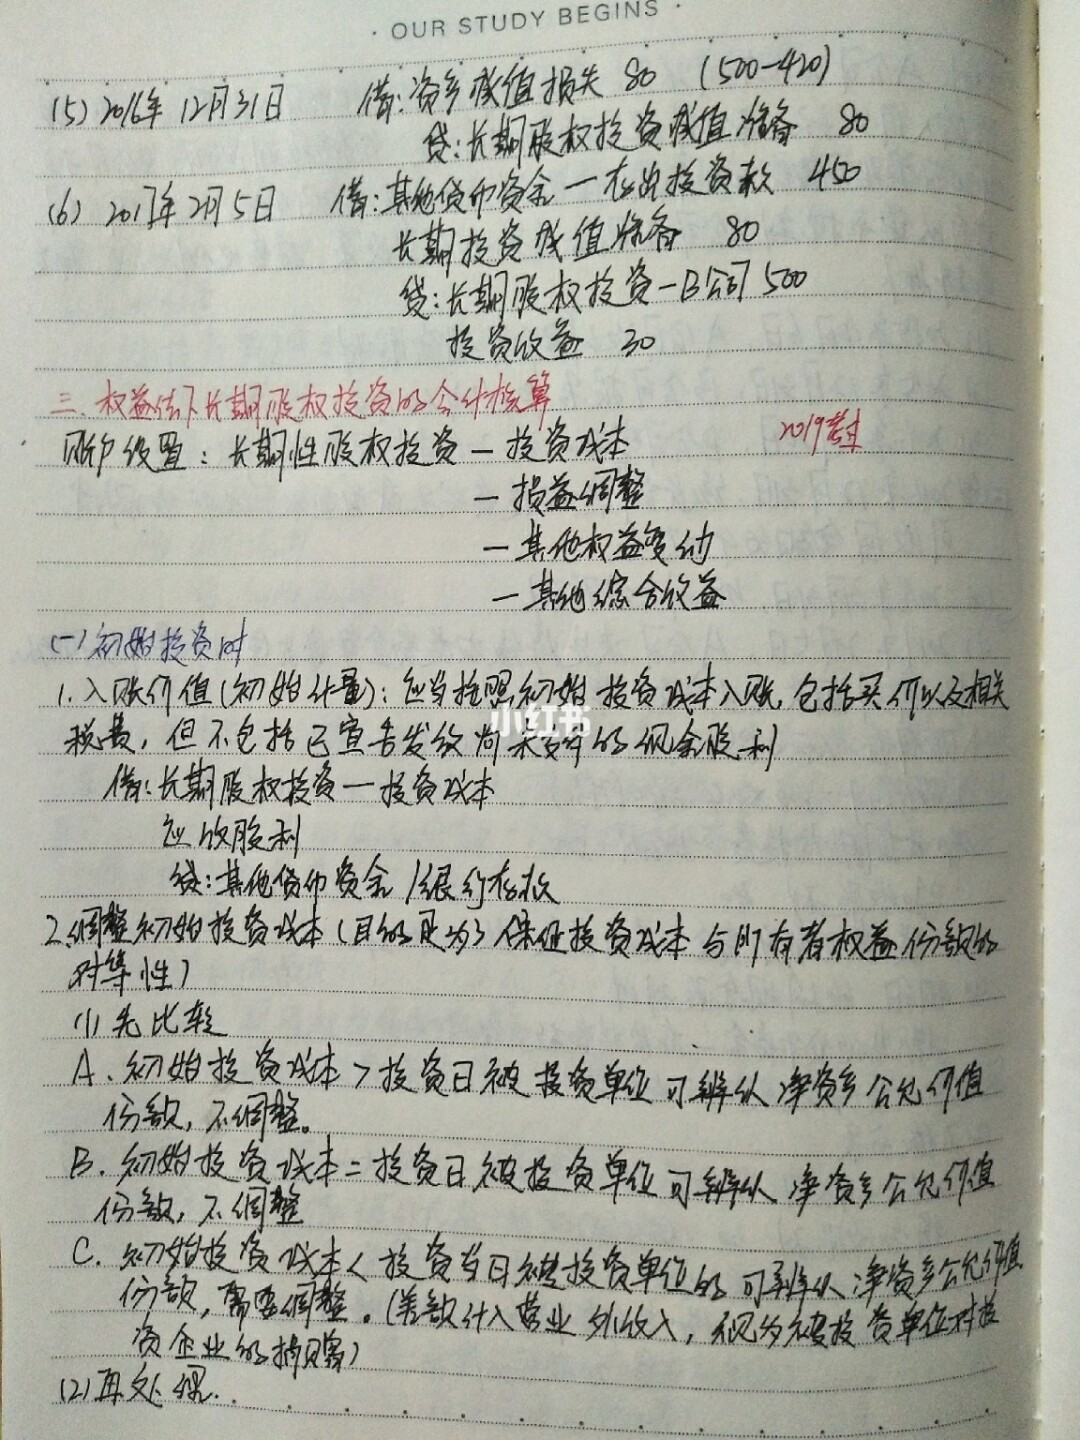 · OUR STUDY BEGINS ·
(5) 2016年12月31日 借:资产减值损失 80 (500-420)
贷:长期股权投资减值准备 80
(6) 2017年2月5日 借:其他货币资金—存出投资款 450
长期投资减值准备 80
贷:长期股权投资—B公司 500
投资收益 30
三、权益法下长期股权投资的会计核算
2019考过
账户设置:长期性股权投资—投资成本
—损益调整
—其他权益变动
—其他综合收益
(一)初始投资时
1.入账价值(初始计量):应当按照初始投资成本入账,包括买价以及相关
税费,但不包括已宣告发放尚未支付的现金股利
小红书
借:长期股权投资—投资成本
应收股利
贷:其他货币资金/银行存款
2.调整初始投资成本(目的是为了保证投资成本与所有者权益份额的
对等性)
(1)先比较
A.初始投资成本>投资日被投资单位可辨认净资产公允价值
份额,不调整。
B.初始投资成本=投资日被投资单位可辨认净资产公允价值
份额,不调整
C.初始投资成本<投资当日被投资单位的可辨认净资产公允价值
份额,需要调整。(差额计入营业外收入,视为被投资单位对投
资企业的捐赠)
(2)再处理.